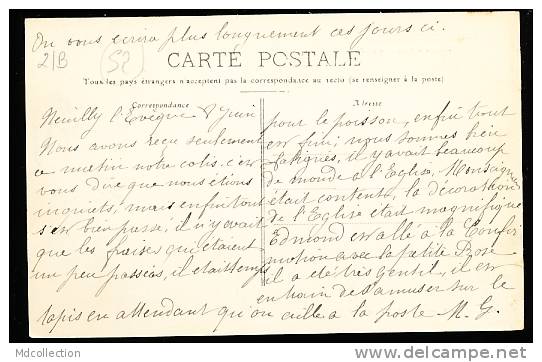 On vous ecrira plus longuement ces jours ci.
2/B
52
CARTE POSTALE
Tous les pays étrangers n'acceptent pas la correspondance au recto (se renseigner à la poste)
Correspondance
Neuilly l'Evêque 8 Juin
Nous avons reçu seulement
ce matin notre colis. c'est
vous dire que nous étions
inquiets, mais enfin tout
s'est bien passé, il n'y avait
que les fraises qui étaient
un peu passées, il était temps
Adresse
pour le poisson, enfin tout
est fini; nous sommes bien
fatigués, il y avait beaucoup
de monde à l'Eglise, Monseigneur
était content, la décoration
de l'Eglise était magnifique
Edmond est allé à la Confir
mation avec la petite Rose
il a été très gentil, il est
en train de s'amuser sur le
tapis en attendant qu'on aille a la poste M. G.
Mdcollection
http://www.delcampe.net